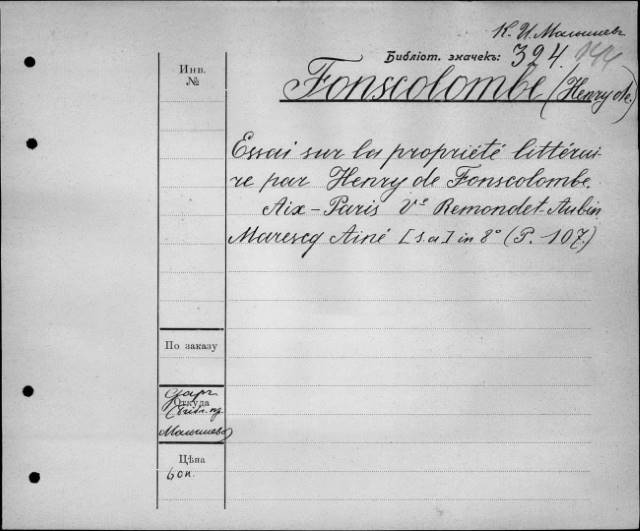 К. И. Малышев
Библіот. значекъ: 324. 144
Инв. №
Fonscolombe (Henry de.)
Essai sur la propriété littérai-
re par Henry de Fonscolombe.
Aix - Paris Vᵉ Remondet-Aubin
Marescq Ainé [s.a.] in 8° (P. 107.)
По заказу
Откуда
Малышева
Цѣна
60 к.